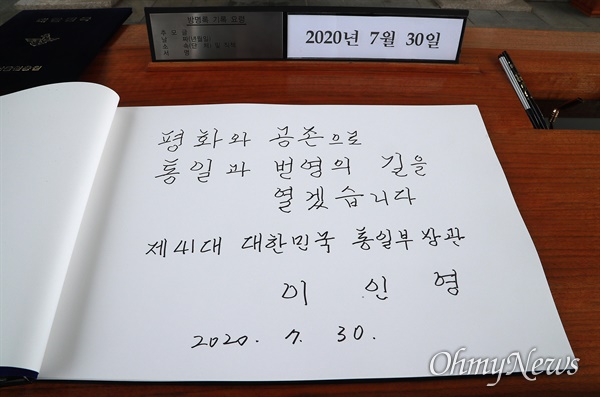 방명록 기록 요령
추 모 글
날 짜(년월일)
소 속(단 체) 및 직책
서 명
2020년 7월 30일
평화와 공존으로
통일과 번영의 길을
열겠습니다
제41대 대한민국 통일부장관
이 인 영
2020. 7. 30.
OhmyNews